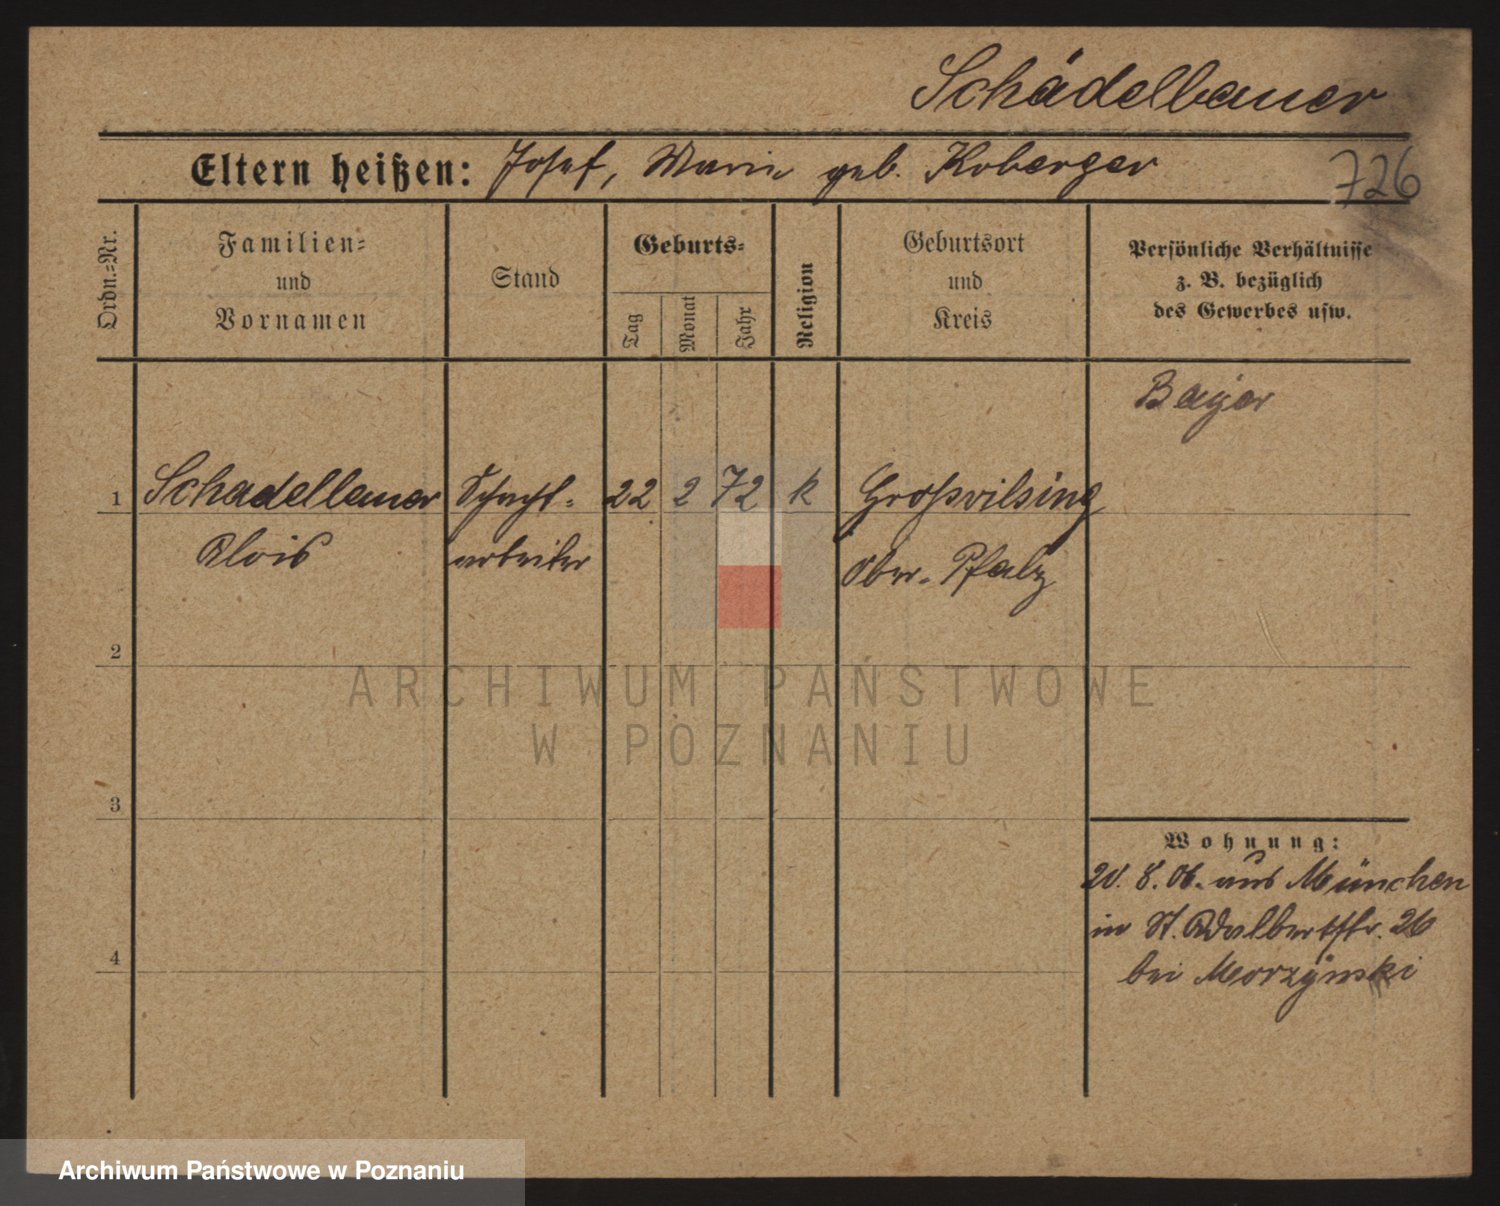 Schädelbauer
Eltern heißen: Josef, Marie geb. Koberger
726
Ordn.=Nr.
Familien=
und
Vornamen
Stand
Geburts=
Tag
Monat
Jahr
Religion
Geburtsort
und
Kreis
Persönliche Verhältnisse
z. B. bezüglich
des Gewerbes usw.
Bayer
1 Schadelbauer Schacht= 22 2 72 k Großvilsing
Alois arbeiter Ober-Pfalz
2
3
4
Wohnung:
20. 8. 06. aus München
in St. Adalbertstr. 26
bei Morzynski
ARCHIWUM PAŃSTWOWE
W POZNANIU
Archiwum Państwowe w Poznaniu